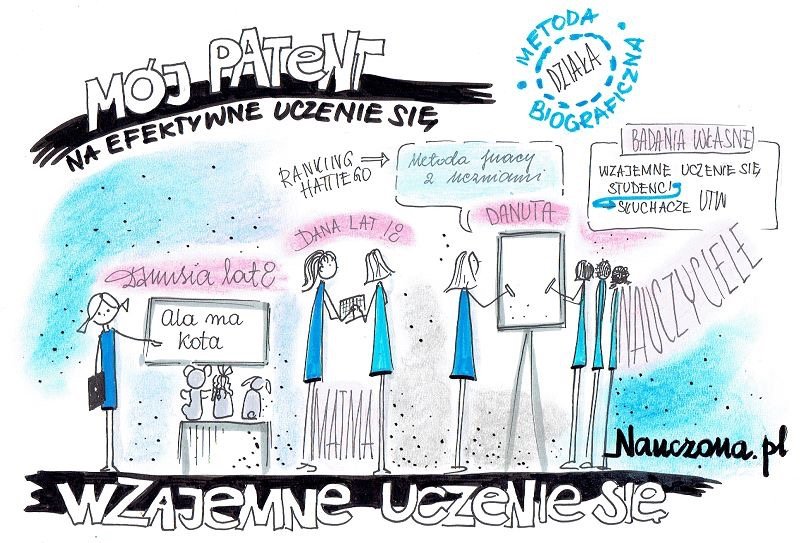 MÓJ PATENT
NA EFEKTYWNE UCZENIE SIĘ
METODA
DZIAŁA
BIOGRAFICZNA
RANKING
HATTIEGO
Metoda pracy
z uczniami
BADANIA WŁASNE
WZAJEMNE UCZENIE SIĘ
STUDENCI
SŁUCHACZE UTW
DANA LAT 18
DANUTA
Danusia lat 8
Ala ma
kota
NAUCZYCIELE
MATMA
Nauczona.pl
WZAJEMNE UCZENIE SIĘ